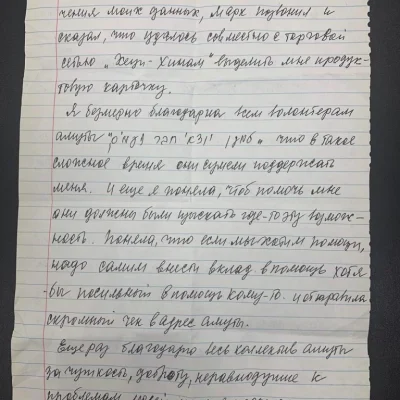 чения моих данных, Марк позвонил и
сказал, что удалось совместно с торговой
сетью „Хеци-Хинам" выделить мне продук-
товую карточку.
Я безмерно благодарна всем волонтерам
амуты что в такое
сложное время они сумели поддержать
меня. И еще я поняла, чтоб помочь мне
они должны были изыскать где-то эту возмож-
ность. Поняла, что если мы хотим помощи,
надо самим внести вклад в помощь хотя
бы посильный в помощь кому-то. и отправила
скромный чек в адрес амуты.
Еще раз благодарю весь коллектив амуты
за чуткость, доброту, неравнодушие к
проблемам